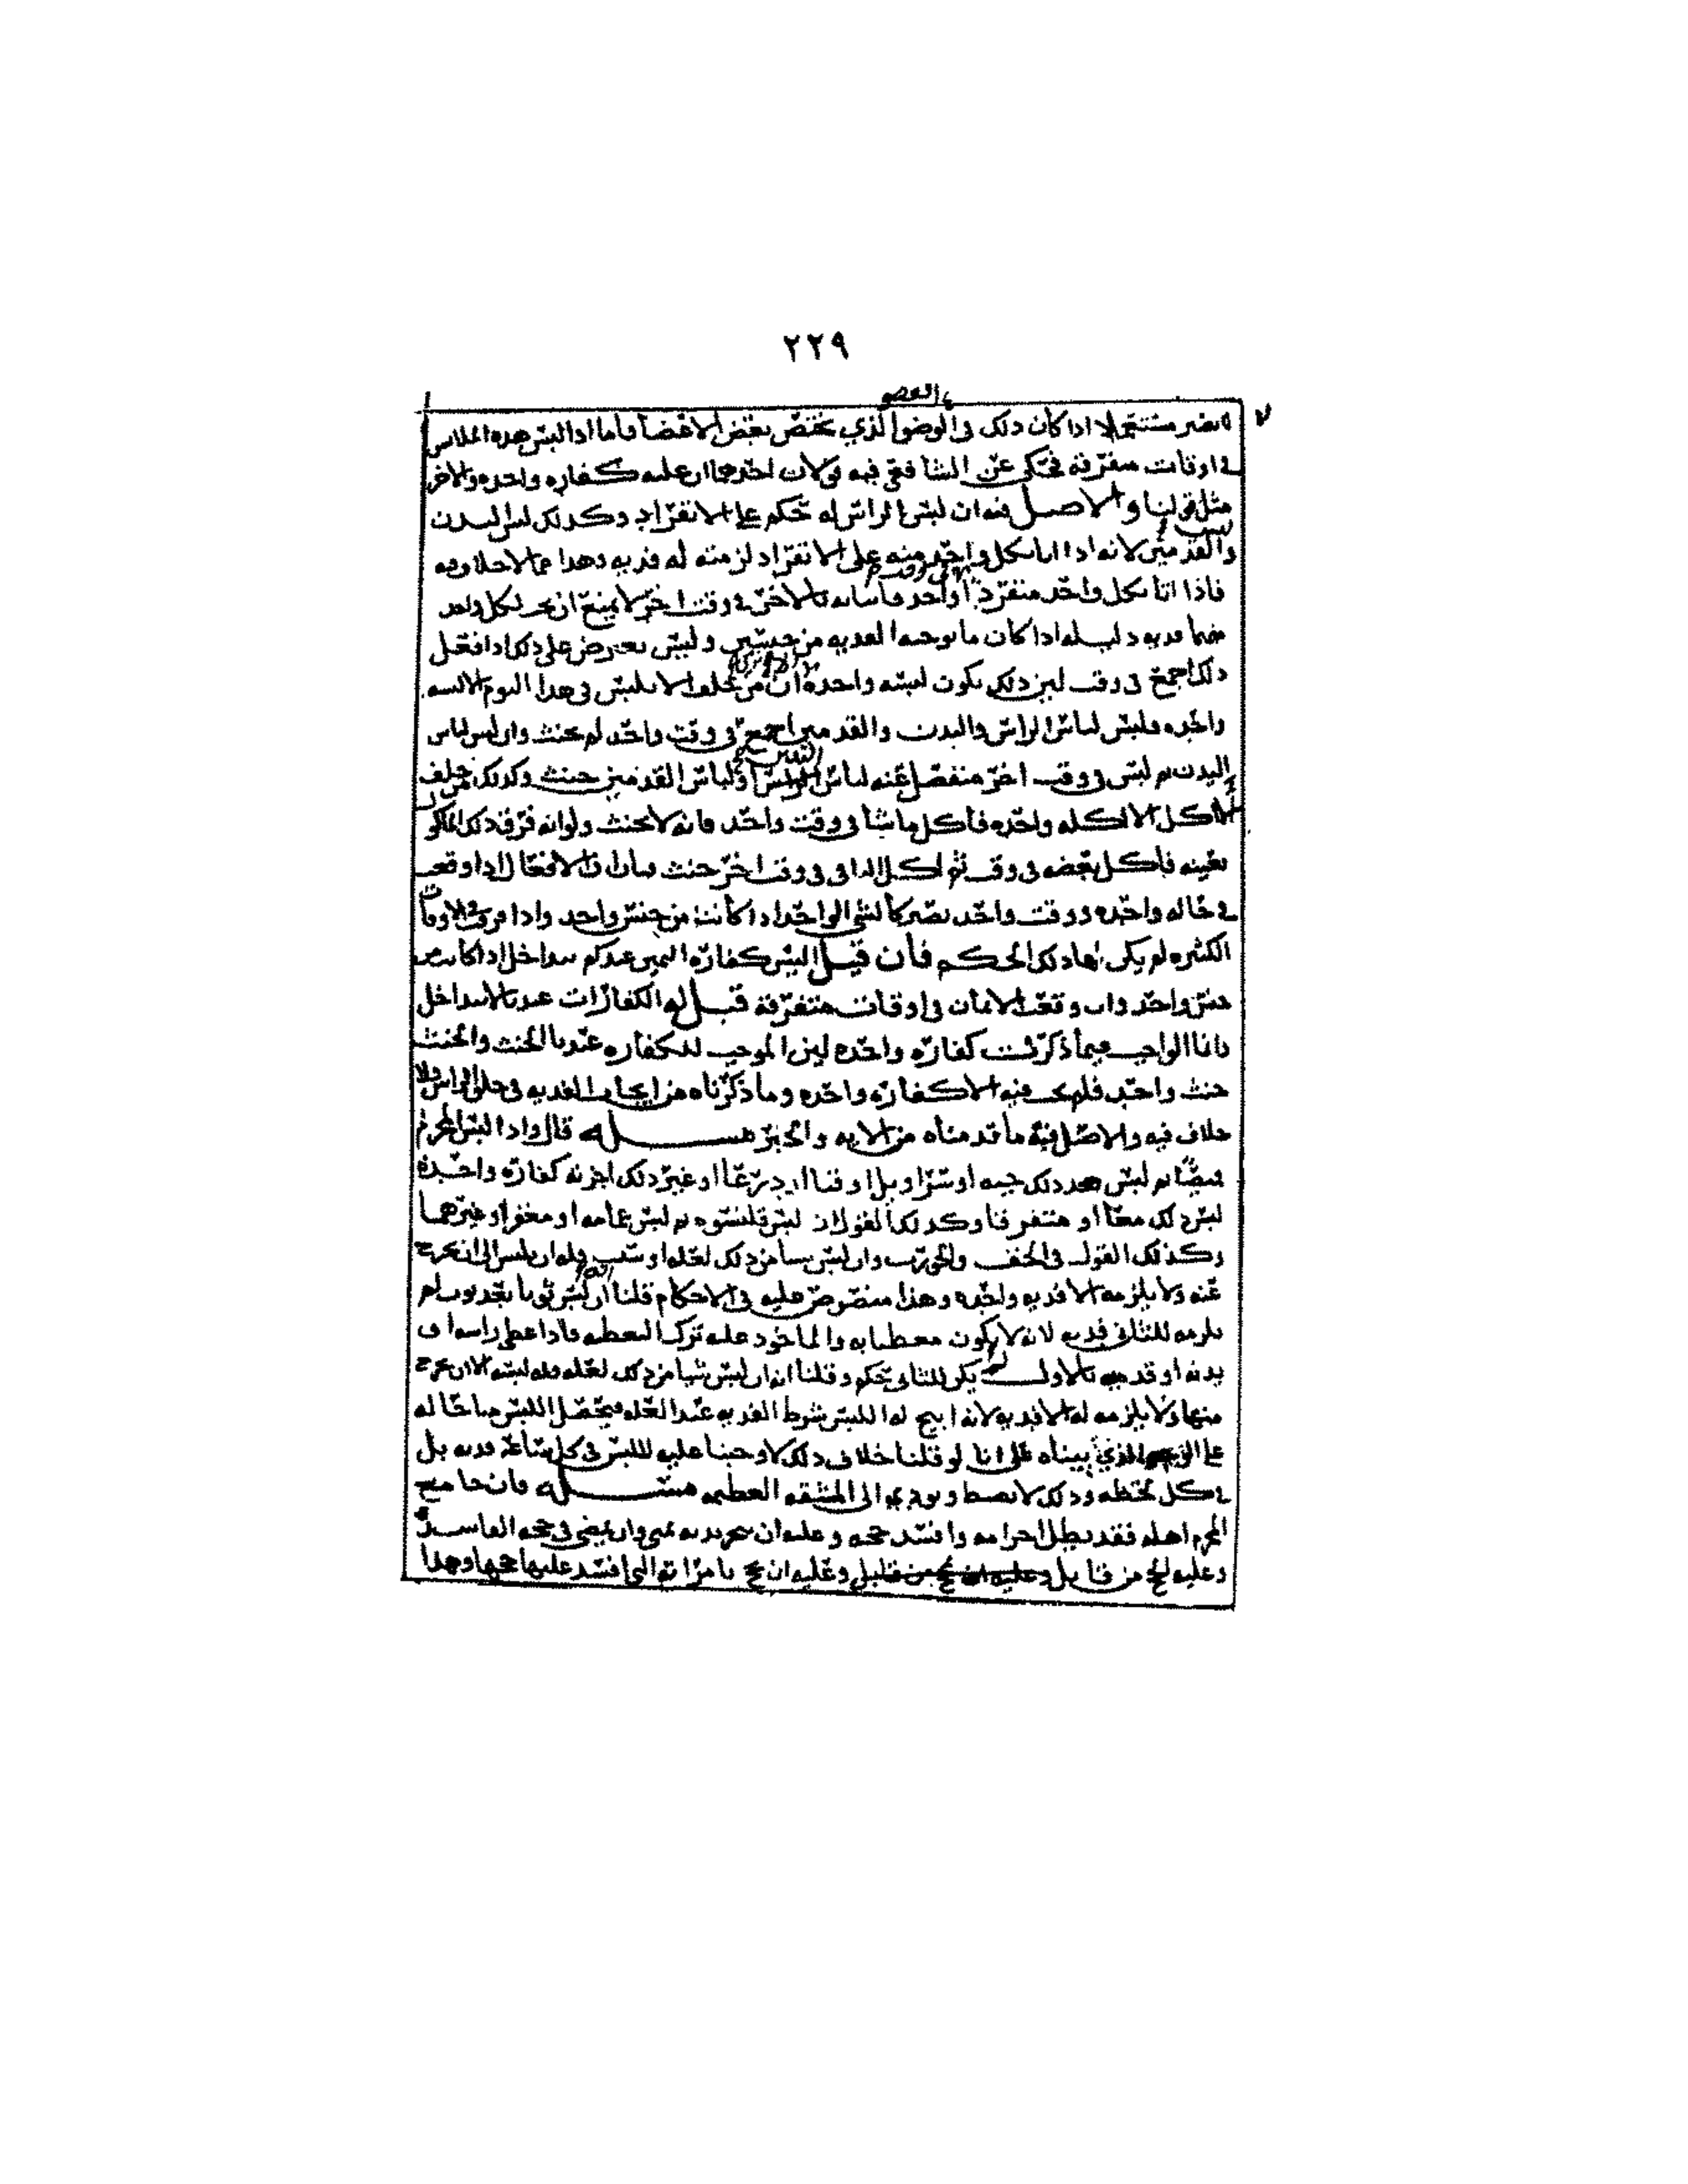 ٢٢٩
العضو
مستعملا اذا كان ذلك في الوضوا لذي يختص ببعض الاعضا فاما اذا لبس هذه الملابس
في اوقات متفرقه فحكى عن الشافعي فيه قولان احدهما ان عليه كفاره واحده والاخر
مثل قولنا والاصل فيه ان لبس الراس له حكم على الانفراد وكذلك لبس البدن
والقدمين لانه اذا اتا بكل واحد منه على الانفراد لزمته له فديه وهذا مما لا خلاف فيه
فاذا اتا بكل واحد منفردا في وقت اخر لا يمنع ان يجب لكل واحد
منهما فديه دليله اذا كان ما يوجب الفديه من جنسين وليس يعترض على ذلك اذا فعل
ذلك اجمع في وقت لين ذلك يكون لبسه واحده من يحلف الا يلبس في هذا اليوم الا لبسه
واحده فلبس لباس الراس والبدن والقدمين اجمع في وقت واحد لم يحنث وان لبس لباس
البدن ثم لبس في وقت اخر منفصل عنه لباس الراس او لباس القدمين حنث وكذلك من حلف
لا اكل الا اكله واحده فاكل ما شا في وقت واحد فانه لا يحنث ولو انه فرق ذلك الماكول
بعينه فاكل بعضه في وقت ثم اكل الباقي في وقت اخر حنث فبان ان الافعال اذا وقعت
في حاله واحده ووقت واحد تصير كالشي الواحد اذا كانت من جنس واحد واذا فرق في الاوقات
الكثيره لم يكن لها ذلك الحكم فان قيل اليس كفارة اليمين عندكم تتداخل اذا كانت من
جنس واحد وان وقعت الايمان في اوقات متفرقه قيل له الكفارات عندنا لا تتداخل
وانما الواجب فيما ذكرت كفاره واحده لين الموجب للكفاره عندنا الحنث والحنث
حنث واحد فلم يجب فيه الا كفاره واحده وما ذكرناه من ايجاب الفديه في حلق الراس فلا
خلاف فيه والاصل فيه ما قدمناه من الايه والخبر مسله قال واذا لبس المحرم
قميصا ثم لبس بعد ذلك جبه او سراويل او قبا او درعا او غير ذلك اجزته كفاره واحده
لبس ذلك معا او متفرقا وكذلك القول ان لبس قلنسوه ثم لبس عمامه او مغفرا وغيرهما
وكذلك القول في الخف والجورب وان لبس شيا من ذلك لعله او سبب فله ان يلبس الى ان يخرج
عنه ولا يلزمه الا فديه واحده وهذا منصوص عليه في الاحكام قلنا ان لبس ثوبا بعد ثوب لم
يلزمه للثاني فديه لانه لا يكون مغطيا به والماخوذ عليه ترك التغطيه فاذا غطى راسه او
بدنه او قدميه بالاول لم يكن للثاني حكم وقلنا انه ان لبس شيا من ذلك لعله فله لبسه الا ان يخرج
منها ولا يلزمه له الا فديه لانه ابيح له اللبس بشرط الفديه عند العله فيحصل اللبس مباحا له
على الوجه الذي بيناه على انا لو قلنا خلاف ذلك لاوجبنا عليه للبس في كل ساعة فديه بل
في كل لحظه وذلك لا ينضبط ويودي الى المشقه العظيمه مسله فان جامع
المحرم اهله فقد بطل احرامه وافسد حجه وعليه ان ينحر بدنه بمنى وان يمضي في حجه الفاسد
وعليه الحج من قابل وعليه ان يحج بامراته التي افسد عليها حجها وهذا